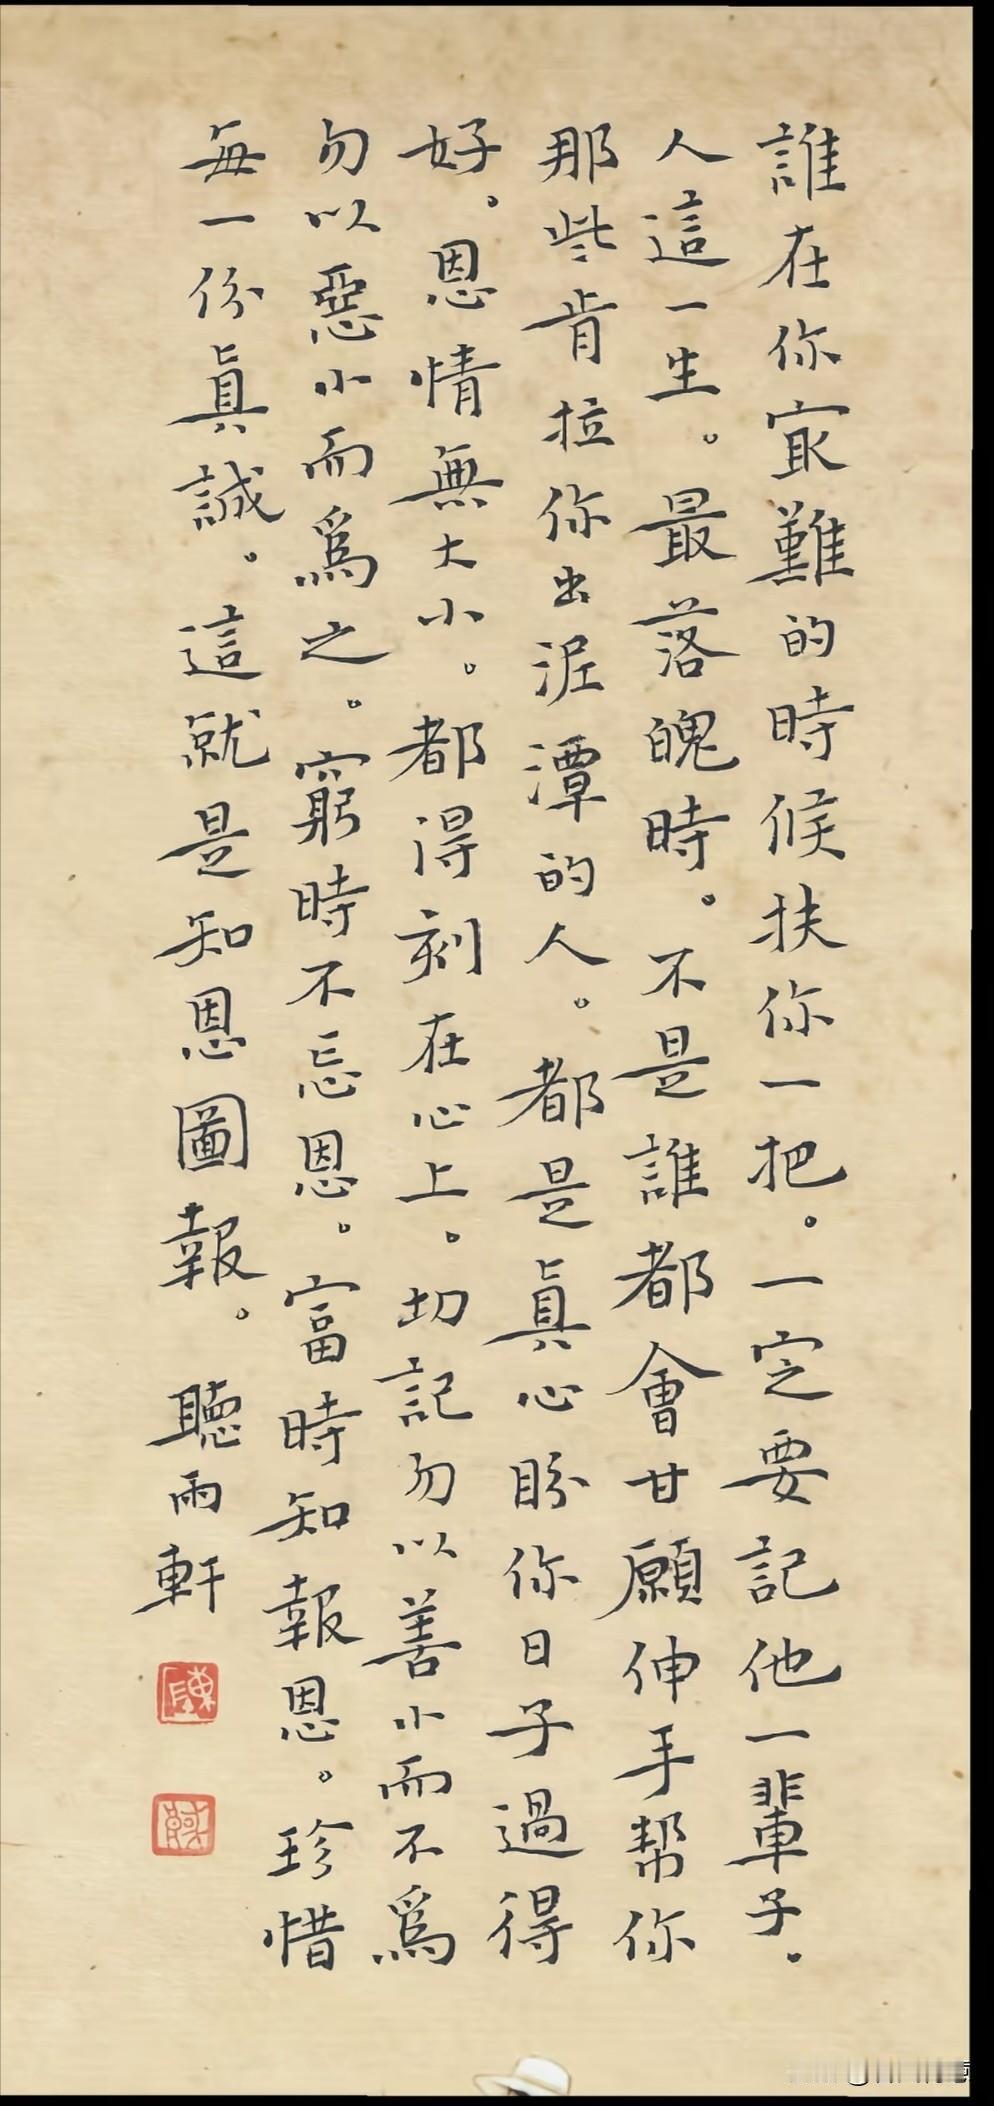 誰在你㝡難的時候扶你一把。一定要記他一輩子。
人這一生。最落魄時。不是誰都會甘願伸手幫你
那些肯拉你出泥潭的人。都是真心盼你日子過得
好。恩情無大小。都得刻在心上。切記勿以善小而不為
勿以惡小而為之。窮時不忘恩。富時知報恩。珍惜
每一份真誠。這就是知恩圖報。聽雨軒